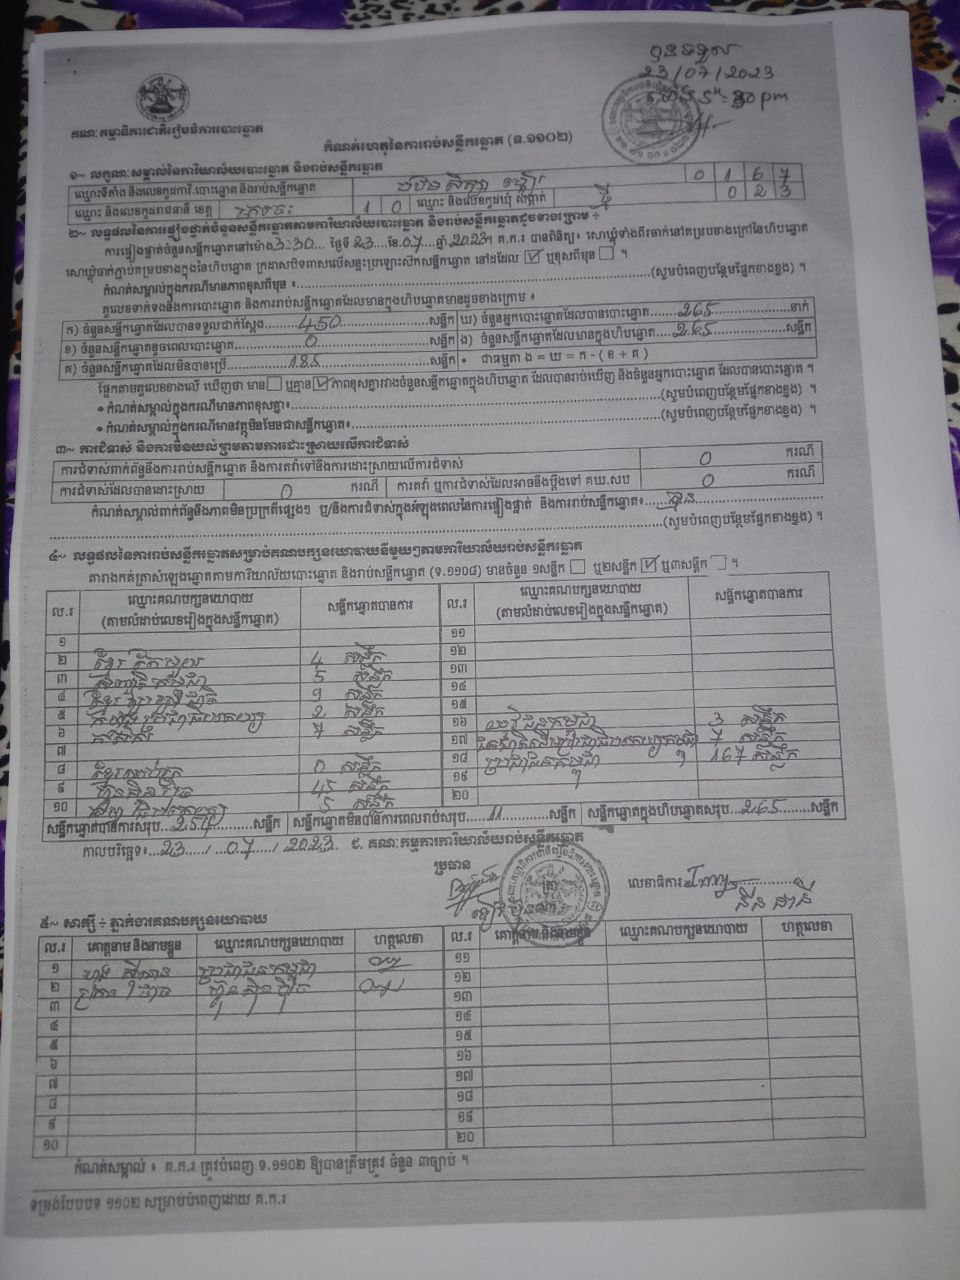 បានទទួល
23/07/2023
ម៉ោង 5:30 pm
គណៈកម្មាធិការជាតិរៀបចំការបោះឆ្នោត
កំណត់ហេតុនៃការរាប់សន្លឹកឆ្នោត (ទ.១១០២)
១~ លក្ខណៈសម្គាល់នៃការិយាល័យបោះឆ្នោត និងរាប់សន្លឹកឆ្នោត
ឈ្មោះទីតាំង និងលេខកូដការិ.បោះឆ្នោត និងរាប់សន្លឹកឆ្នោត 0 1 6 7
ឈ្មោះ និងលេខកូដរាជធានី ខេត្ត ក្រចេះ 1 0 ឈ្មោះ និងលេខកូដឃុំ សង្កាត់ 0 2 3
២~ លទ្ធផលនៃការផ្ទៀងផ្ទាត់ចំនួនសន្លឹកឆ្នោតតាមការិយាល័យបោះឆ្នោត និងរាប់សន្លឹកឆ្នោតដូចខាងក្រោម ÷
ការផ្ទៀងផ្ទាត់ចំនួនសន្លឹកឆ្នោតនៅម៉ោង 3:30 ថ្ងៃទី 23 ខែ 07 ឆ្នាំ 2023 គ.ក.រ បានពិនិត្យ៖ សោឃ្លុំទាំងពីរចាក់នៅគម្របខាងក្រៅនៃហិបឆ្នោត
សោឃ្លុំចាក់ភ្ជាប់គម្របខាងក្នុងនៃហិបឆ្នោត ក្រដាសបិទពាសលើសន្ទះប្រឡោះស៊កសន្លឹកឆ្នោត នៅដដែល ☑ ឬខុសពីមុន ☐ ។
កំណត់សម្គាល់ក្នុងករណីមានភាពខុសពីមុន ៖ (សូមបំពេញបន្ថែមផ្នែកខាងខ្នង) ។
តួលេខទាក់ទងនឹងការបោះឆ្នោត និងការរាប់សន្លឹកឆ្នោតដែលមានក្នុងហិបឆ្នោតមានដូចខាងក្រោម ៖
ក) ចំនួនសន្លឹកឆ្នោតដែលបានទទួលជាក់ស្តែង 450 សន្លឹក ឃ) ចំនួនអ្នកបោះឆ្នោតដែលបានបោះឆ្នោត 265 នាក់
ខ) ចំនួនសន្លឹកឆ្នោតខូចពេលបោះឆ្នោត 0 សន្លឹក ង) ចំនួនសន្លឹកឆ្នោតដែលមានក្នុងហិបឆ្នោត 265 សន្លឹក
គ) ចំនួនសន្លឹកឆ្នោតដែលមិនបានប្រើ 185 សន្លឹក • ជាធម្មតា ង = ឃ = ក - ( ខ + គ )
ផ្អែកតាមតួលេខខាងលើ ឃើញថា មាន ☐ ឬគ្មាន ☑ ភាពខុសគ្នារវាងចំនួនសន្លឹកឆ្នោតក្នុងហិបឆ្នោត ដែលបានរាប់ឃើញ និងចំនួនអ្នកបោះឆ្នោត ដែលបានបោះឆ្នោត ។
• កំណត់សម្គាល់ក្នុងករណីមានភាពខុសគ្នា៖ (សូមបំពេញបន្ថែមផ្នែកខាងខ្នង) ។
• កំណត់សម្គាល់ក្នុងករណីមានវត្ថុមិនមែនជាសន្លឹកឆ្នោត៖ (សូមបំពេញបន្ថែមផ្នែកខាងខ្នង) ។
៣~ ការជំទាស់ និងការមិនយល់ព្រមតាមការដោះស្រាយលើការជំទាស់
ការជំទាស់ពាក់ព័ន្ធនឹងការរាប់សន្លឹកឆ្នោត និងការតវ៉ាទៅនឹងការដោះស្រាយលើការជំទាស់ 0 ករណី
ការជំទាស់ដែលបានដោះស្រាយ 0 ករណី ការតវ៉ា ឬការជំទាស់ដែលអាចនឹងប្តឹងទៅ គឃ.សប 0 ករណី
កំណត់សម្គាល់ពាក់ព័ន្ធនឹងភាពមិនប្រក្រតីផ្សេងៗ ឬ/និងការជំទាស់ក្នុងអំឡុងពេលនៃការផ្ទៀងផ្ទាត់ និងការរាប់សន្លឹកឆ្នោត៖ គ្មាន
(សូមបំពេញបន្ថែមផ្នែកខាងខ្នង) ។
៤~ លទ្ធផលនៃការរាប់សន្លឹកឆ្នោតសម្រាប់គណបក្សនយោបាយនីមួយៗតាមការិយាល័យរាប់សន្លឹកឆ្នោត
តារាងកត់ត្រាសំឡេងឆ្នោតតាមការិយាល័យបោះឆ្នោត និងរាប់សន្លឹកឆ្នោត (ទ.១១០៨) មានចំនួន ១សន្លឹក ☐ ឬ២សន្លឹក ☑ ឬ៣សន្លឹក ☐ ។
ល.រ ឈ្មោះគណបក្សនយោបាយ (តាមលំដាប់លេខរៀងក្នុងសន្លឹកឆ្នោត) សន្លឹកឆ្នោតបានការ ល.រ ឈ្មោះគណបក្សនយោបាយ (តាមលំដាប់លេខរៀងក្នុងសន្លឹកឆ្នោត) សន្លឹកឆ្នោតបានការ
១ ១១
២ 4 សន្លឹក ១២
៣ 5 សន្លឹក ១៣
៤ ខ្មែររួបរួមជាតិ 9 សន្លឹក ១៤
៥ 2 សន្លឹក ១៥
៦ កសិករ 7 សន្លឹក ១៦ យុវជនកម្ពុជា 3 សន្លឹក
៧ ១៧ 7 សន្លឹក
៨ 0 សន្លឹក ១៨ ប្រជាជនកម្ពុជា 167 សន្លឹក
៩ ហ៊្វុនស៊ិនប៉ិច 45 សន្លឹក ១៩
១០ 5 សន្លឹក ២០
សន្លឹកឆ្នោតបានការសរុប 254 សន្លឹក សន្លឹកឆ្នោតមិនបានការពេលរាប់សរុប 11 សន្លឹក សន្លឹកឆ្នោតក្នុងហិបឆ្នោតសរុប 265 សន្លឹក
កាលបរិច្ឆេទ៖ 23 / 07 / 2023 ជ. គណៈកម្មការការិយាល័យរាប់សន្លឹកឆ្នោត
ប្រធាន
លេខាធិការ
៥~ សាក្សី ÷ ភ្នាក់ងារគណបក្សនយោបាយ
ល.រ គោត្តនាម និងនាមខ្លួន ឈ្មោះគណបក្សនយោបាយ ហត្ថលេខា ល.រ គោត្តនាម និងនាមខ្លួន ឈ្មោះគណបក្សនយោបាយ ហត្ថលេខា
១ ប្រជាជនកម្ពុជា ១១
២ ហ៊្វុនស៊ិនប៉ិច ១២
៣ ១៣
៤ ១៤
៥ ១៥
៦ ១៦
៧ ១៧
៨ ១៨
៩ ១៩
១០ ២០
កំណត់សម្គាល់ ៖ គ.ក.រ ត្រូវបំពេញ ទ.១១០២ ឱ្យបានត្រឹមត្រូវ ចំនួន ៣ច្បាប់ ។
ទម្រង់បែបបទ ១១០២ សម្រាប់បំពេញដោយ គ.ក.រ